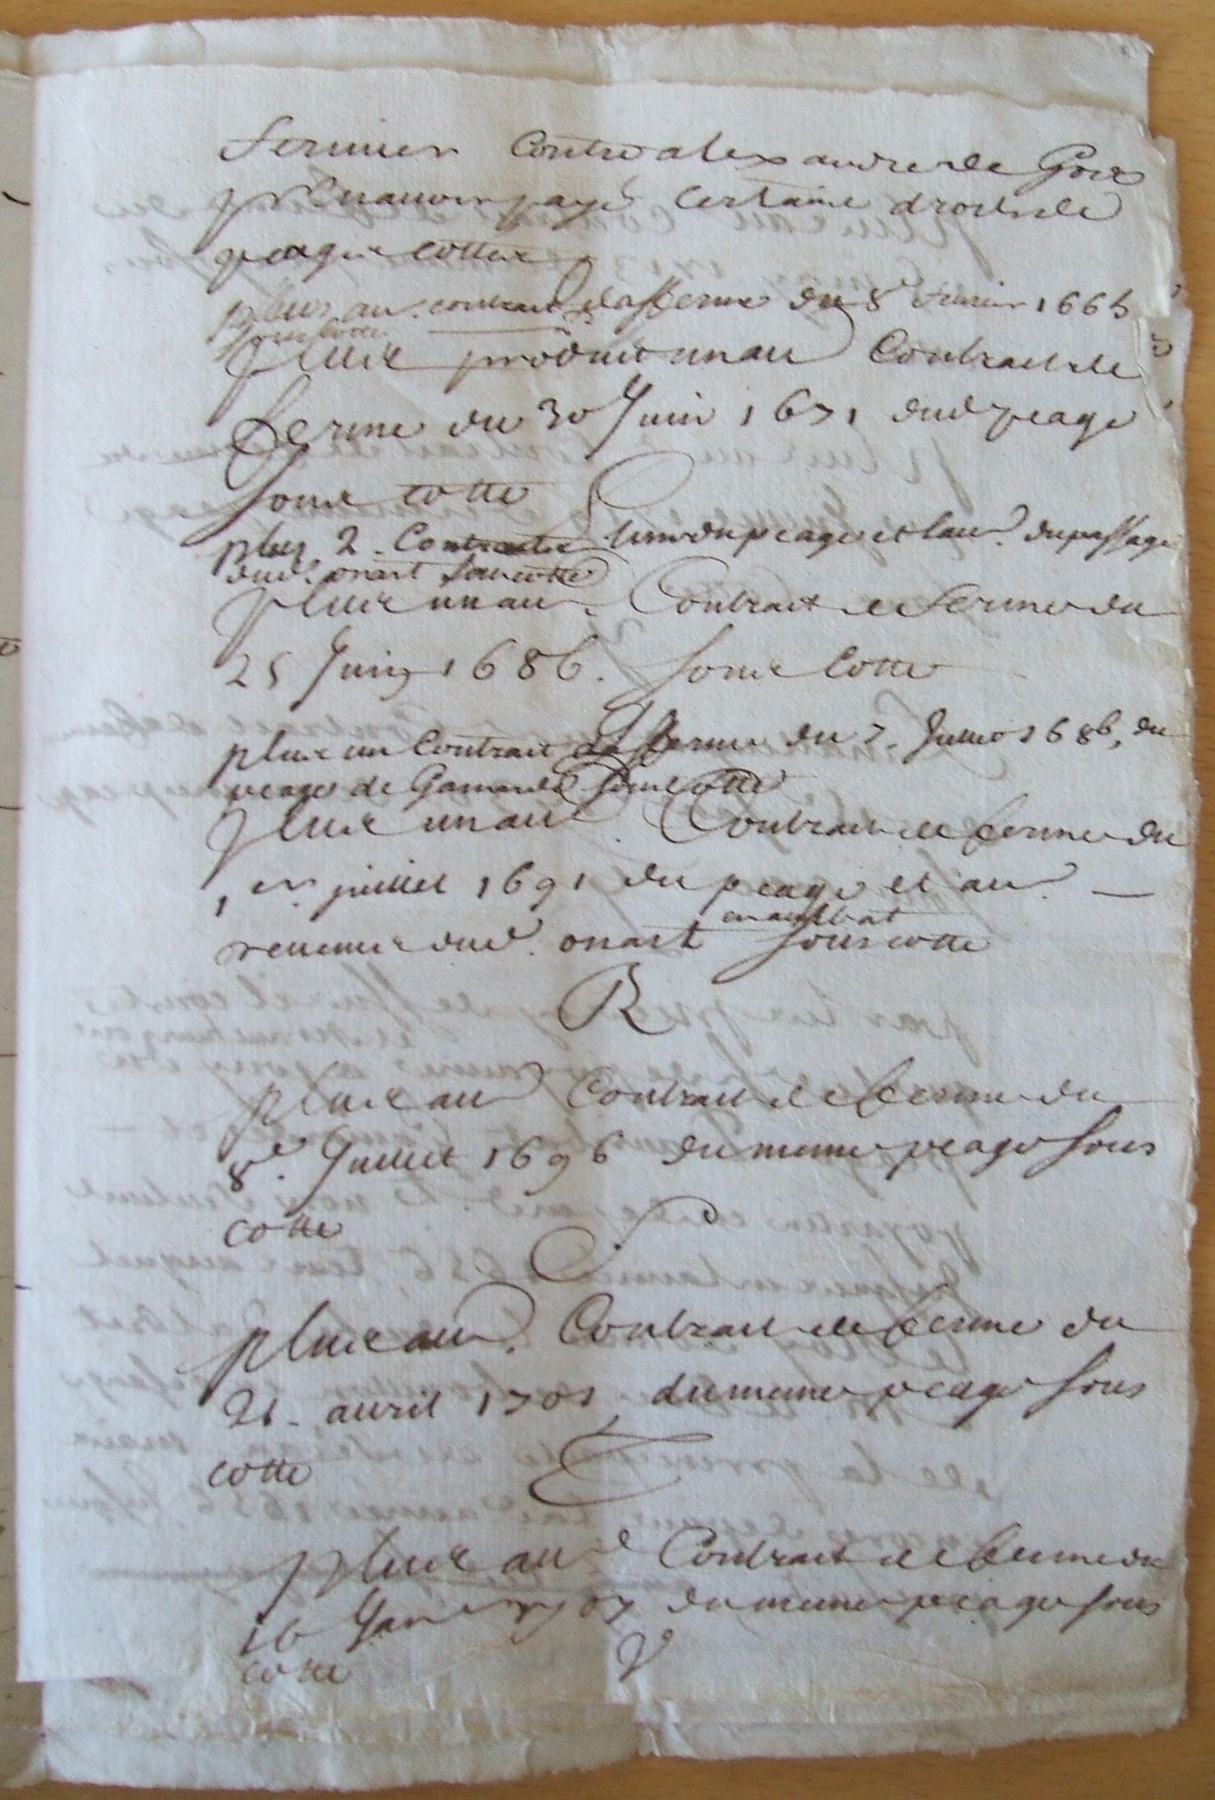 fermier Contre alexandre de Goix
pr navoir payé certains droits de
peage cotte
plus au. contract d'afferme du 8e feurier 1665
sous cotte
plus produit un au Contrait de
ferme du 30 Juin 1671 dud peage
sous cotte
plus 2. Contracts lun du peage et lau. du passage
dud. onart sous cotte
plus un au. Contrait de ferme du
25 Juin 1686. sous Cotte
plus un Contrait d'afferme du 7. Juillet 1686, du
peage de Gamarde sous cotte
plus un au. Contrait de ferme du
1er. juillet 1691 du peage et au.
en aulbat
reuenus dud. onart sous cotte
R
plus au Contrait de ferme du
8e. Juillet 1696 du meme peage sous
cotte S
plus au. Contrait de ferme du
21. auril 1701 du meme peage sous
cotte T
plus au. Contrait de ferme du
16 Janvier 1707 du meme peage sous
cotte V